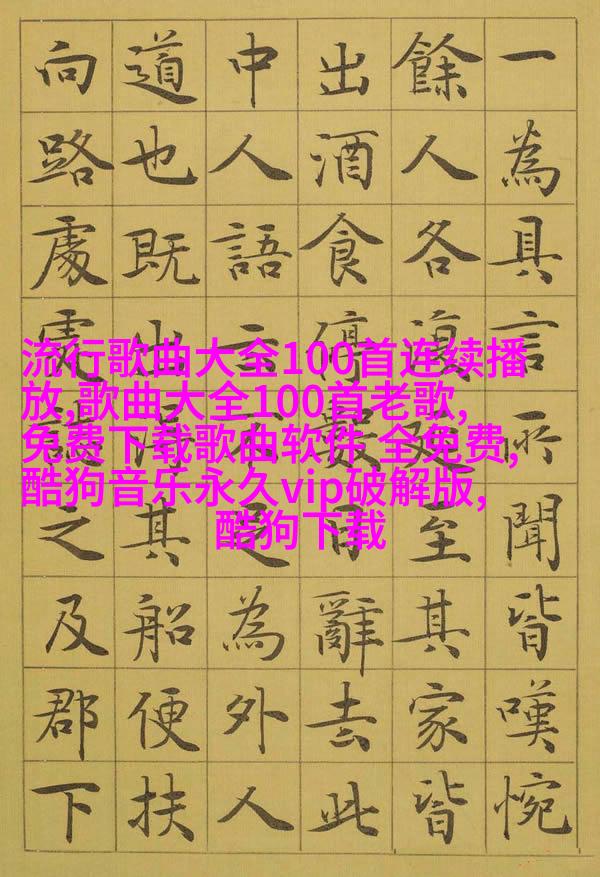 一為具言所聞皆嘆惋
餘人各復延至其家皆
出酒食停數日辭去此
中人語云不足為外人
道也既出得其船便扶
向路處處誌之及郡下
流行歌曲大全100首连续播
放,歌曲大全100首老歌,
免费下载歌曲软件 全免费,
酷狗音乐永久vip破解版,
酷狗下载